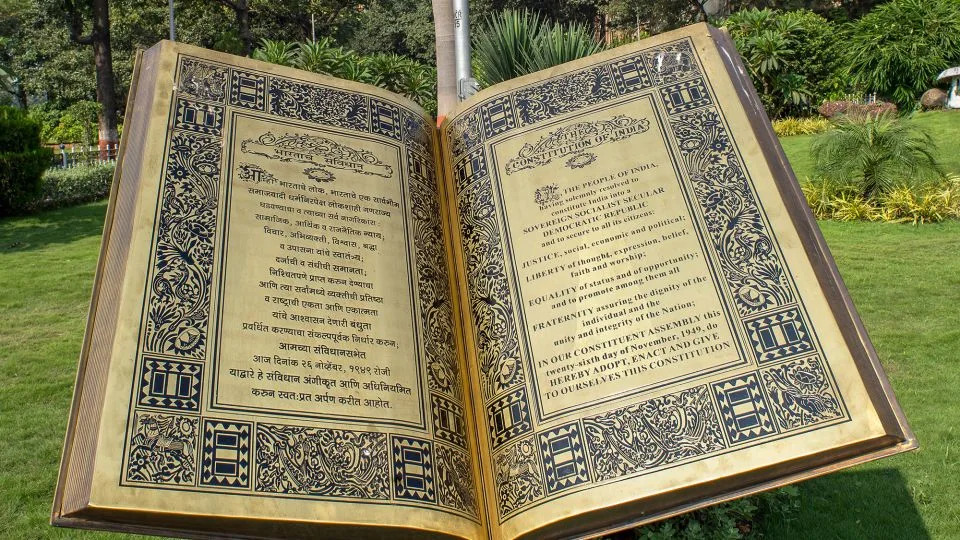 भारताचे संविधान
आम्ही भारताचे लोक, भारताचे एक सार्वभौम
समाजवादी धर्मनिरपेक्ष लोकशाही गणराज्य
घडवण्याचा व त्याच्या सर्व नागरिकांस :
सामाजिक, आर्थिक व राजनैतिक न्याय;
विचार, अभिव्यक्ती, विश्वास, श्रद्धा
व उपासना यांचे स्वातंत्र्य;
दर्जाची व संधीची समानता;
निश्चितपणे प्राप्त करुन देण्याचा
आणि त्या सर्वांमध्ये व्यक्तीची प्रतिष्ठा
व राष्ट्राची एकता आणि एकात्मता
यांचे आश्वासन देणारी बंधुता
प्रवर्धित करण्याचा संकल्पपूर्वक निर्धार करुन;
आमच्या संविधानसभेत
आज दिनांक २६ नोव्हेंबर, १९४९ रोजी
याद्वारे हे संविधान अंगीकृत आणि अधिनियमित
करुन स्वतःप्रत अर्पण करीत आहोत.
THE
CONSTITUTION OF INDIA
WE, THE PEOPLE OF INDIA,
having solemnly resolved to
constitute India into a
SOVEREIGN SOCIALIST SECULAR
DEMOCRATIC REPUBLIC
and to secure to all its citizens:
JUSTICE, social, economic and political;
LIBERTY of thought, expression, belief,
faith and worship;
EQUALITY of status and of opportunity;
and to promote among them all
FRATERNITY assuring the dignity of the
individual and the
unity and integrity of the Nation;
IN OUR CONSTITUENT ASSEMBLY this
twenty-sixth day of November, 1949, do
HEREBY ADOPT, ENACT AND GIVE
TO OURSELVES THIS CONSTITUTION